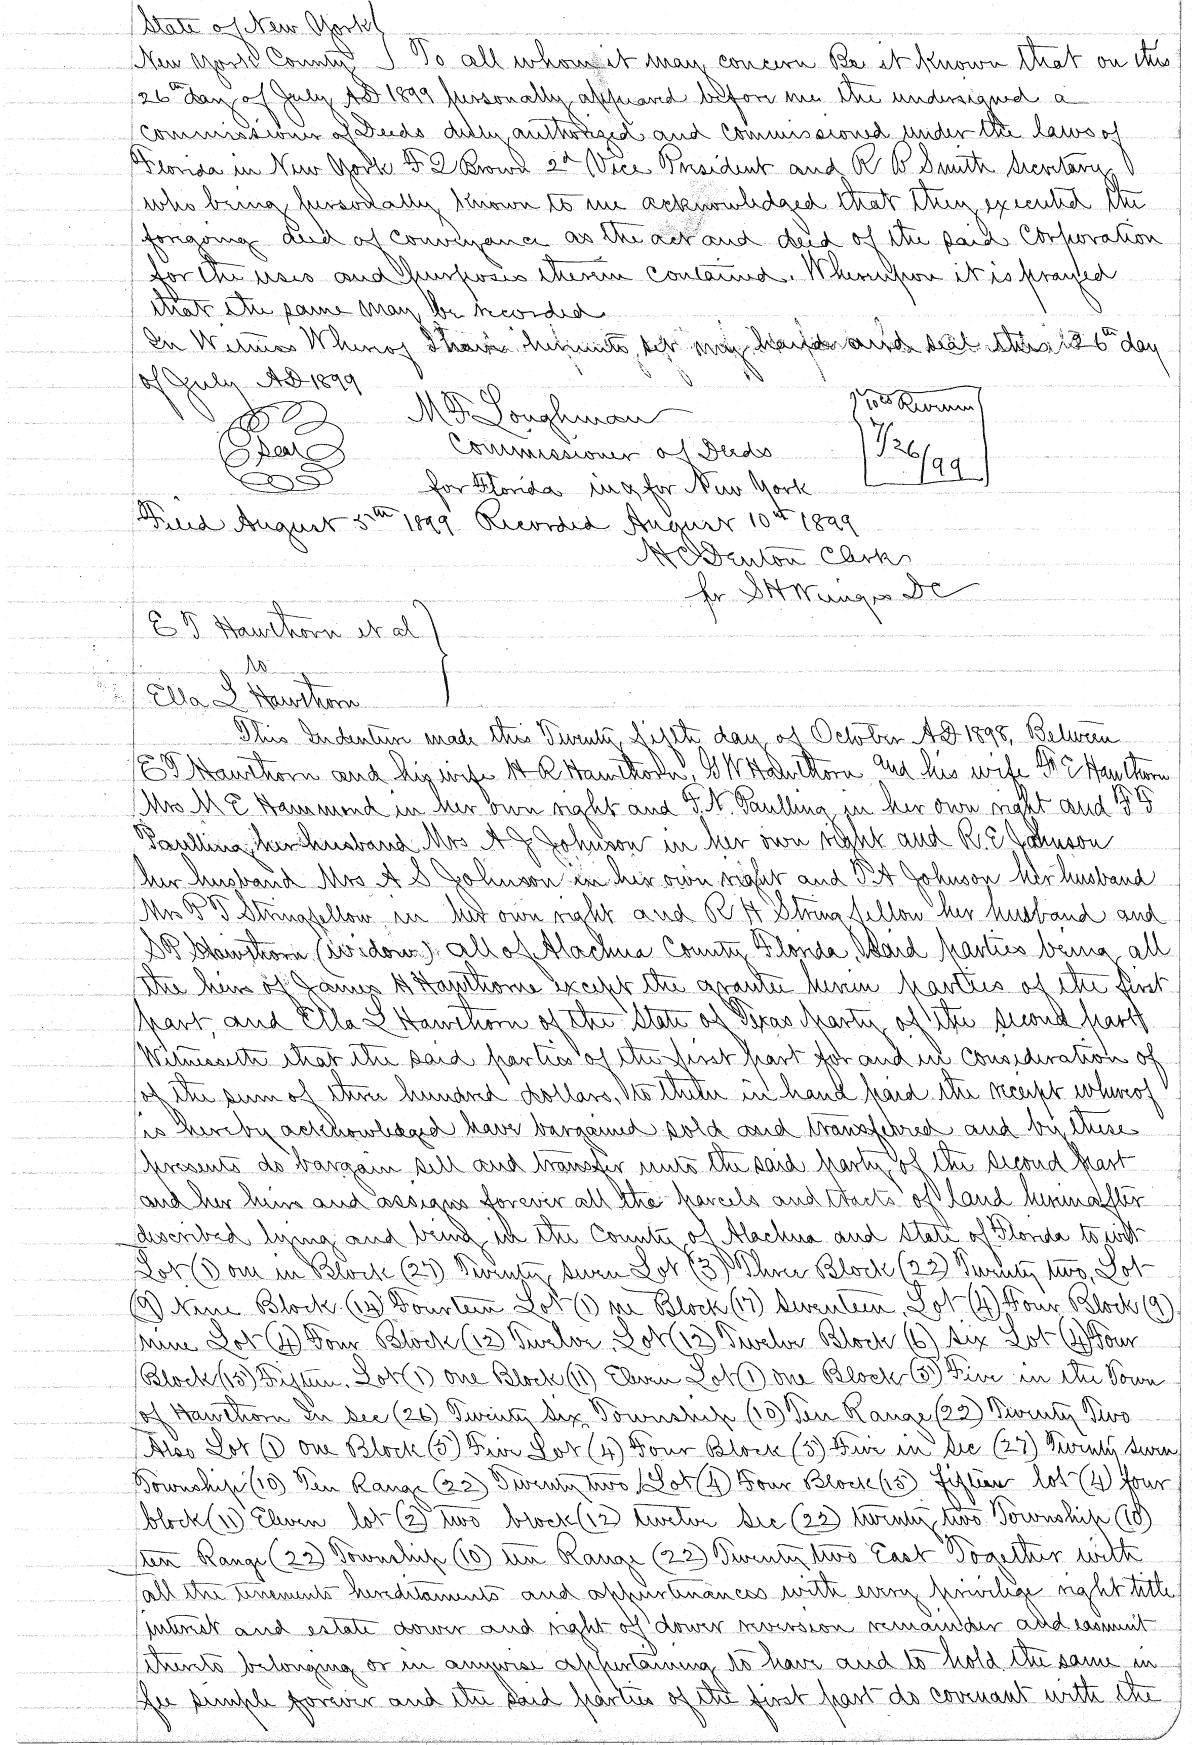 State of New York
New York County To all whom it may concern Be it Known that on this
26th day of July AD 1899 personally appeared before me the undersigned a
Commissioner of Deeds duly authorized and commissioned under the laws of
Florida in New York F Q Brown 2d Vice President and R B Smith Secretary
who being personally known to me acknowledged that they executed the
forgoing deed of conveyance as the act and deed of the said Corporation
for the uses and purposes therein contained. Whereupon it is prayed
that the same may be recorded
In Witness Whereof I have hereunto set my hand and seal this 26th day
of July AD 1899
M F Loughman
Seal
Commissioner of Deeds
10cts Revenue
7/26/99
for Florida in & for New York
Filed August 5th 1899 Recorded August 10th 1899
H C Denton Clerk
for S H Wienges DC
E T Hawthorn et al
to
Ella L Hawthorn
This Indenture made this Twenty fifth day of October AD 1898, Between
E T Hawthorn and his wife H R Hawthorn, G W Hawthorn and his wife F E Hawthorn
Mrs M E Hammond in her own right and F. N. Paulling in her own right and F F
Paulling her husband Mrs A J Johnson in her own right and R. E Johnson
her husband Mrs A S Johnson in her own right and P. A Johnson her husband
Mrs P T Stringfellow in her own right and R H Stringfellow her husband and
S P Hawthorn (widow) all of Alachua County Florida, Said parties being all
the heirs of James H Hawthorne except the grantee herein parties of the first
part, and Ella L Hawthorn of the State of Texas party of the second part
Witnesseth that the said parties of the first part for and in consideration of
of the sum of three hundred dollars, to them in hand paid the receipt whereof
is hereby acknowledged have bargained sold and transferred and by these
presents do bargain sell and transfer unto the said party of the second part
and her heirs and assigns forever all the parcels and tracts of land hereinafter
described lying and being in the County of Alachua and State of Florida to wit
Lot (1) one in Block (27) Twenty seven Lot (3) Three Block (22) Twenty two, Lot
(9) Nine Block (14) Fourteen Lot (1) one Block (17) Seventeen, Lot (4) Four Block (9)
nine Lot (4) Four Block (12) Twelve, Lot (12) Twelve Block (6) six Lot (4) Four
Block (15) Fifteen, Lot (1) one Block (11) Eleven Lot (1) one Block (5) Five in the Town
of Hawthorn In Sec (26) Twenty Six Township (10) Ten Range (22) Twenty Two
Also Lot (1) one Block (5) Five Lot (4) Four Block (5) Five in Sec (27) Twenty seven
Township (10) Ten Range (22) Twenty two, Lot (4) Four Block (15) fifteen lot (4) four
block (11) Eleven lot (2) two block (12) twelve Sec (22) twenty two Township (10)
ten Range (22) Township (10) ten Range (22) Twenty two East Together with
all the tenements hereditaments and appurtenances with every privilege right title
interest and estate dower and right of dower reversion remainder and easment
thereto belonging or in anywise appertaining to have and to hold the same in
fee simple forever and the said parties of the first part do covenant with the